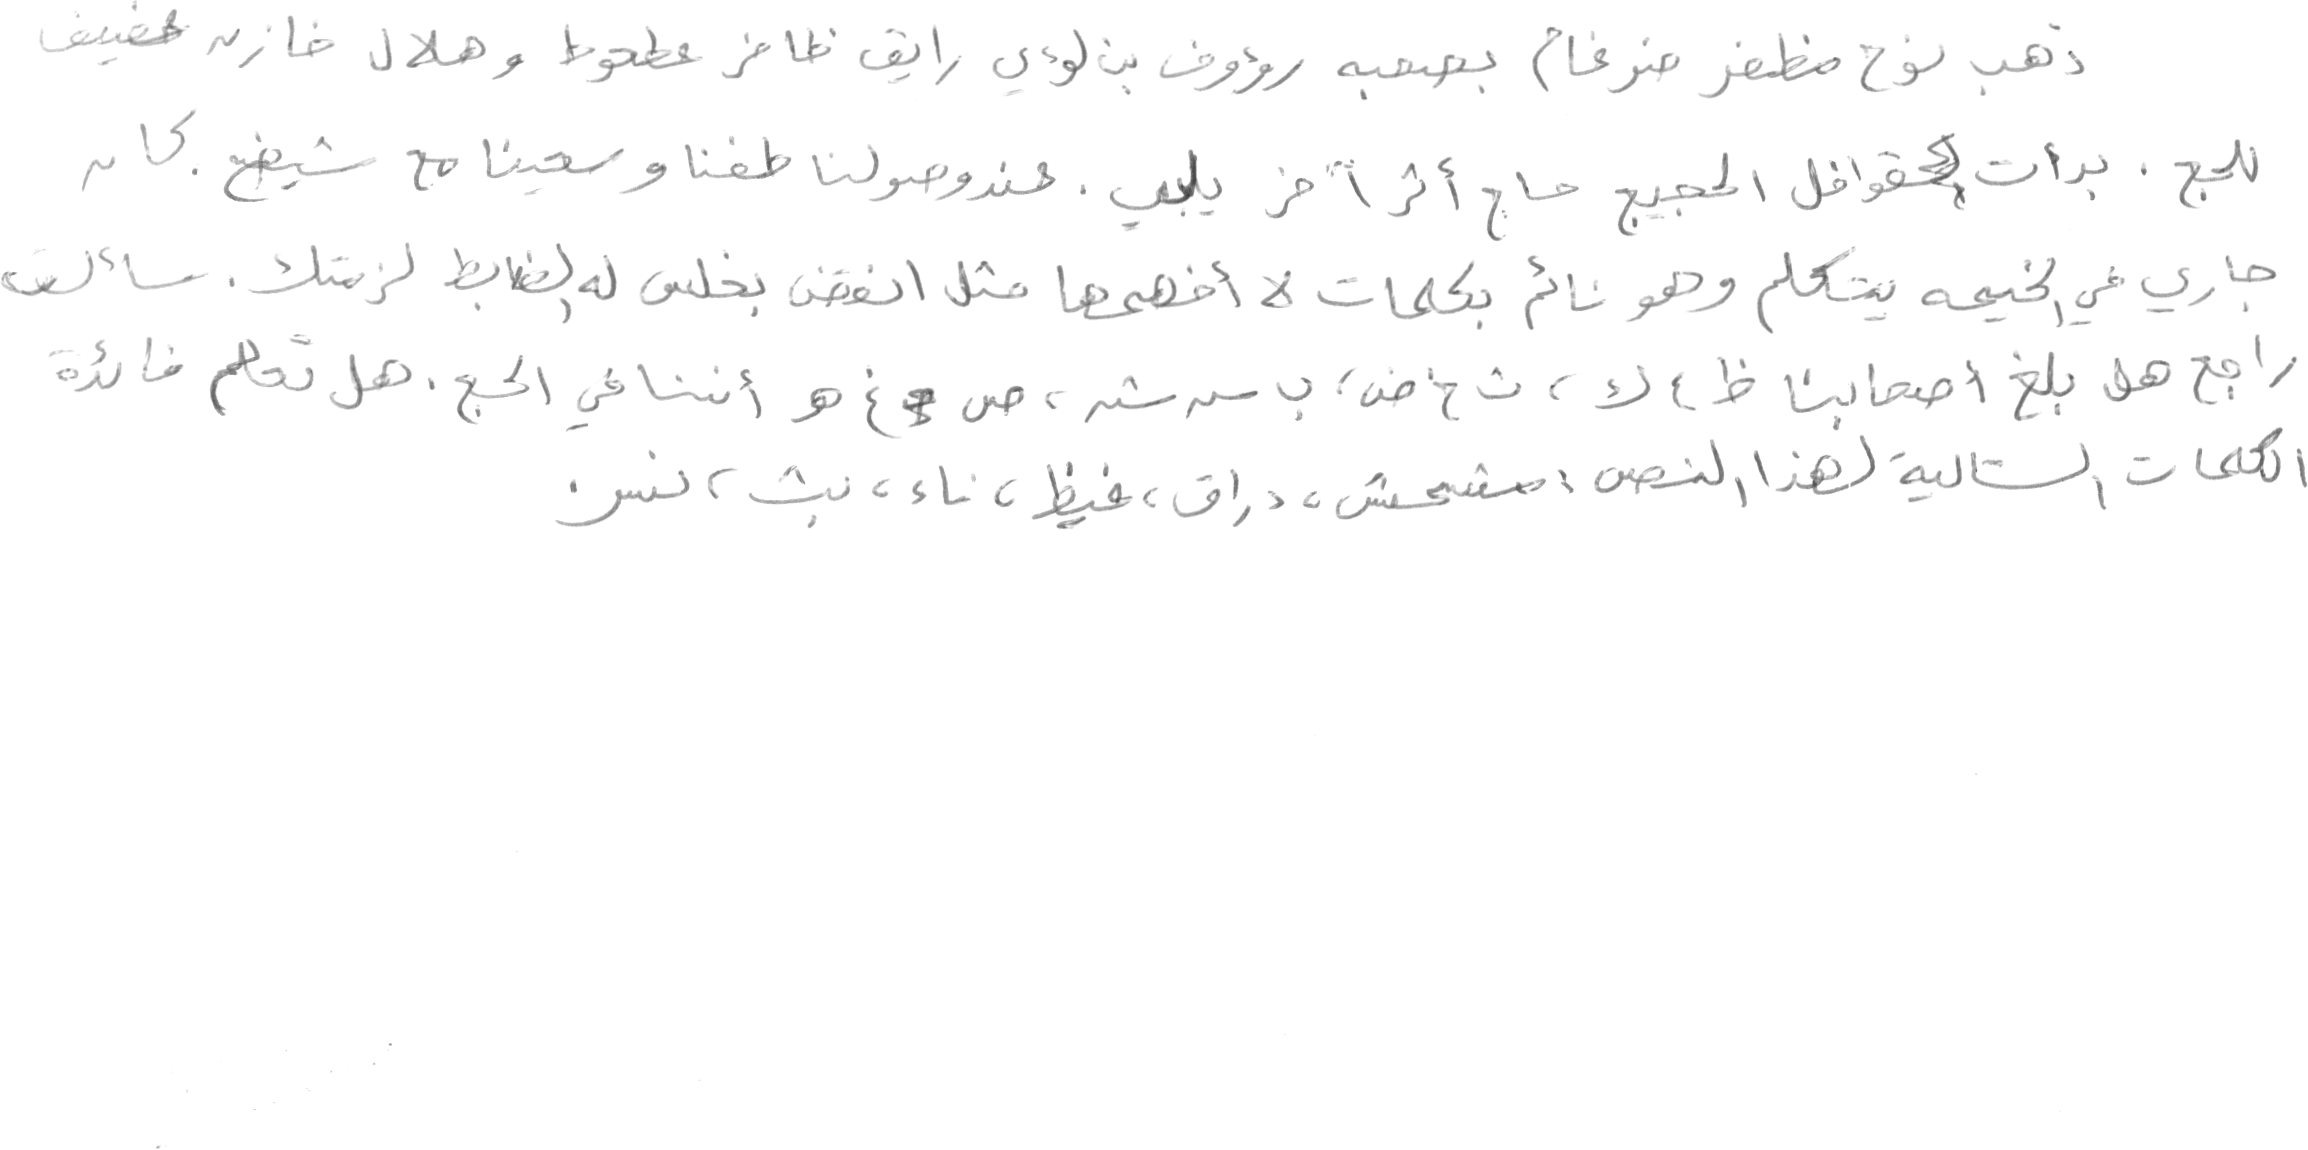 ذهب نوح مظفر ضرغام بصحبه رؤوف بن لؤي رايق ظافر عطعوط وهلال خازن عفيف
للحج . بدأت قوافل الحجيج حاج أثر آخر يلبي . عند وصولنا طفنا وسعينا مع شيخ . كان
جاري في الخيمه يتكلم وهو نائم بكلمات لا أفهمها مثل انفض بخلس له الضابط لزمتك . سائق
راجع هل بلغ أصحابنا ظ ء ك ، ث خ ض ، ب س ش ، ص غ هو أننا في الحج . هل تعلم فائدة
الكلمات التالية لهذا النص : مشمش ، دراق ، غيظ ، ناء ، نبث ، نس .